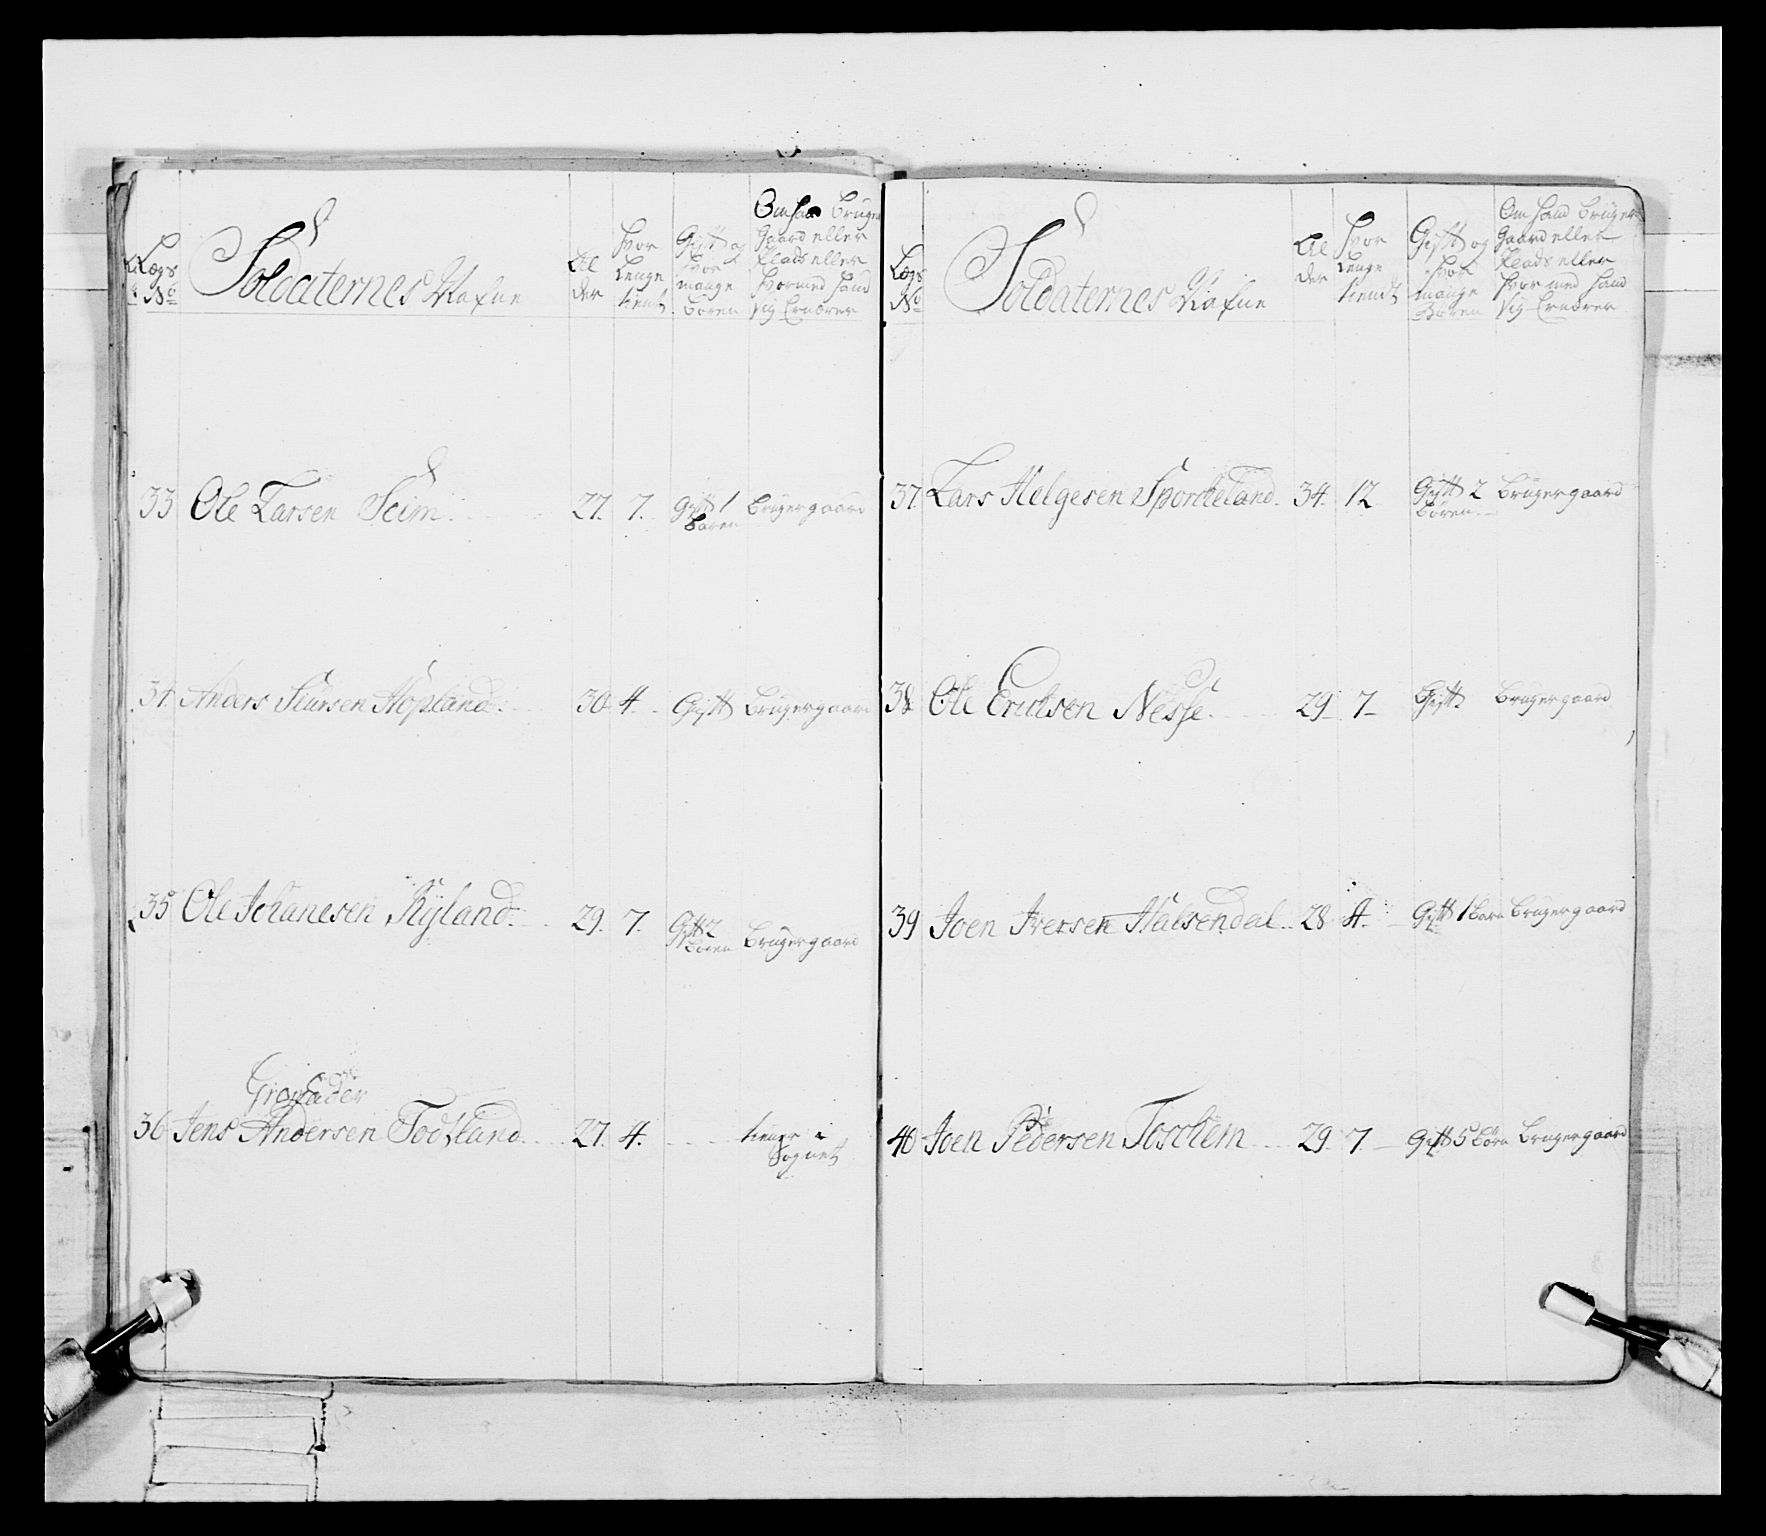 Lægs
No
Soldaternes Nafne
Al
der
Hvor
Lenge
tient
Gift og
hvor
mange
børen
Om hand bruger
Gaard eller
Plads eller
Hvormed hand
sig Ernærer
33 Ole Larsen Seim 27. 7. Gift 1 brugergaard
børen
34 Anders Siursen Hopland 30 4 Gift brugergaard
35 Ole Johanesen Ryland 29. 7. Gift 2
børen brugergaard
Granader
36 Jens Andersen Todland 27. 4. tiener i
Sognet
Lægs
No
Soldaternes Nafne
Al
der
Hvor
Lenge
tiendt
Gift og
hvor
mange
Børen
Om hand bruger
Gaard eller
Plads eller
Hvor med hand
sig Ernærer
37. Lars Helgesen Sporcheland 34. 12 Gift 2 brugergaard
børen
38 Ole Ericksen Nesse 29 7 Gift brugergaard
39 Joen Iversen Halsendal 28 4 Gift 1 barn brugergaard
40 Joen Pedersen Toschem 29. 7. Gift 5 børn brugergaard